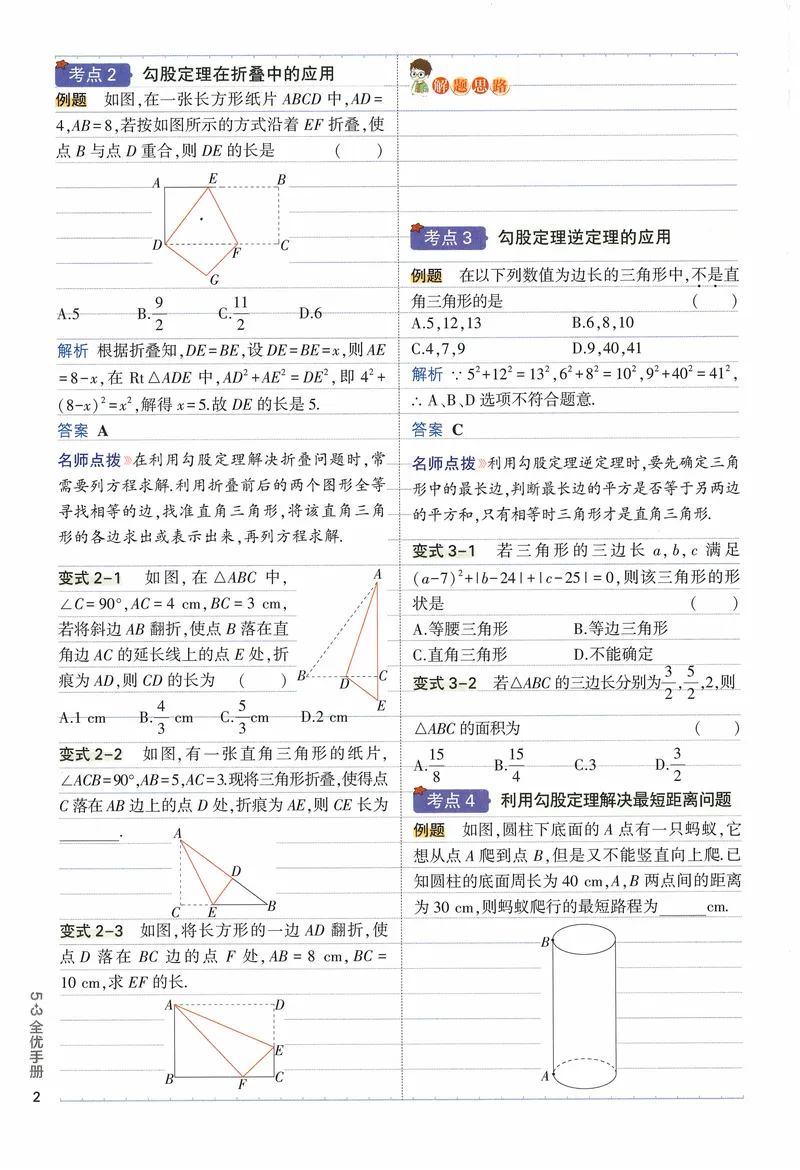 考点 2 勾股定理在折叠中的应用
例题 如图,在一张长方形纸片 ABCD 中,AD=
4,AB=8,若按如图所示的方式沿着 EF 折叠,使
点 B 与点 D 重合,则 DE 的长是 ( )
A E B
D F C
G
A.5 B.9/2 C.11/2 D.6
解析 根据折叠知,DE=BE,设 DE=BE=x,则 AE
=8-x,在 Rt△ADE 中,AD²+AE²=DE²,即 4²+
(8-x)²=x²,解得 x=5.故 DE 的长是 5.
答案 A
名师点拨》在利用勾股定理解决折叠问题时,常
需要列方程求解.利用折叠前后的两个图形全等
寻找相等的边,找准直角三角形,将该直角三角
形的各边求出或表示出来,再列方程求解.
变式 2-1 如图,在 △ABC 中,
∠C=90°,AC=4 cm,BC=3 cm,
若将斜边 AB 翻折,使点 B 落在直
角边 AC 的延长线上的点 E 处,折
痕为 AD,则 CD 的长为 ( )
A
B D C
E
A.1 cm B.4/3 cm C.5/3 cm D.2 cm
变式 2-2 如图,有一张直角三角形的纸片,
∠ACB=90°,AB=5,AC=3.现将三角形折叠,使得点
C 落在 AB 边上的点 D 处,折痕为 AE,则 CE 长为
________.
A
D
C E B
变式 2-3 如图,将长方形的一边 AD 翻折,使
点 D 落在 BC 边的点 F 处,AB = 8 cm,BC =
10 cm,求 EF 的长.
A D
E
B F C
5·3全优手册
2
解题思路
考点 3 勾股定理逆定理的应用
例题 在以下列数值为边长的三角形中,不是直
角三角形的是 ( )
A.5,12,13 B.6,8,10
C.4,7,9 D.9,40,41
解析 ∵ 5²+12²=13²,6²+8²=10²,9²+40²=41²,
∴ A、B、D 选项不符合题意.
答案 C
名师点拨》利用勾股定理逆定理时,要先确定三角
形中的最长边,判断最长边的平方是否等于另两边
的平方和,只有相等时三角形才是直角三角形.
变式 3-1 若三角形的三边长 a,b,c 满足
(a-7)²+|b-24|+|c-25|=0,则该三角形的形
状是 ( )
A.等腰三角形 B.等边三角形
C.直角三角形 D.不能确定
变式 3-2 若△ABC 的三边长分别为3/2,5/2,2,则
△ABC 的面积为 ( )
A.15/8 B.15/4 C.3 D.3/2
考点 4 利用勾股定理解决最短距离问题
例题 如图,圆柱下底面的 A 点有一只蚂蚁,它
想从点 A 爬到点 B,但是又不能竖直向上爬.已
知圆柱的底面周长为 40 cm,A,B 两点间的距离
为 30 cm,则蚂蚁爬行的最短路程为______cm.
B
A